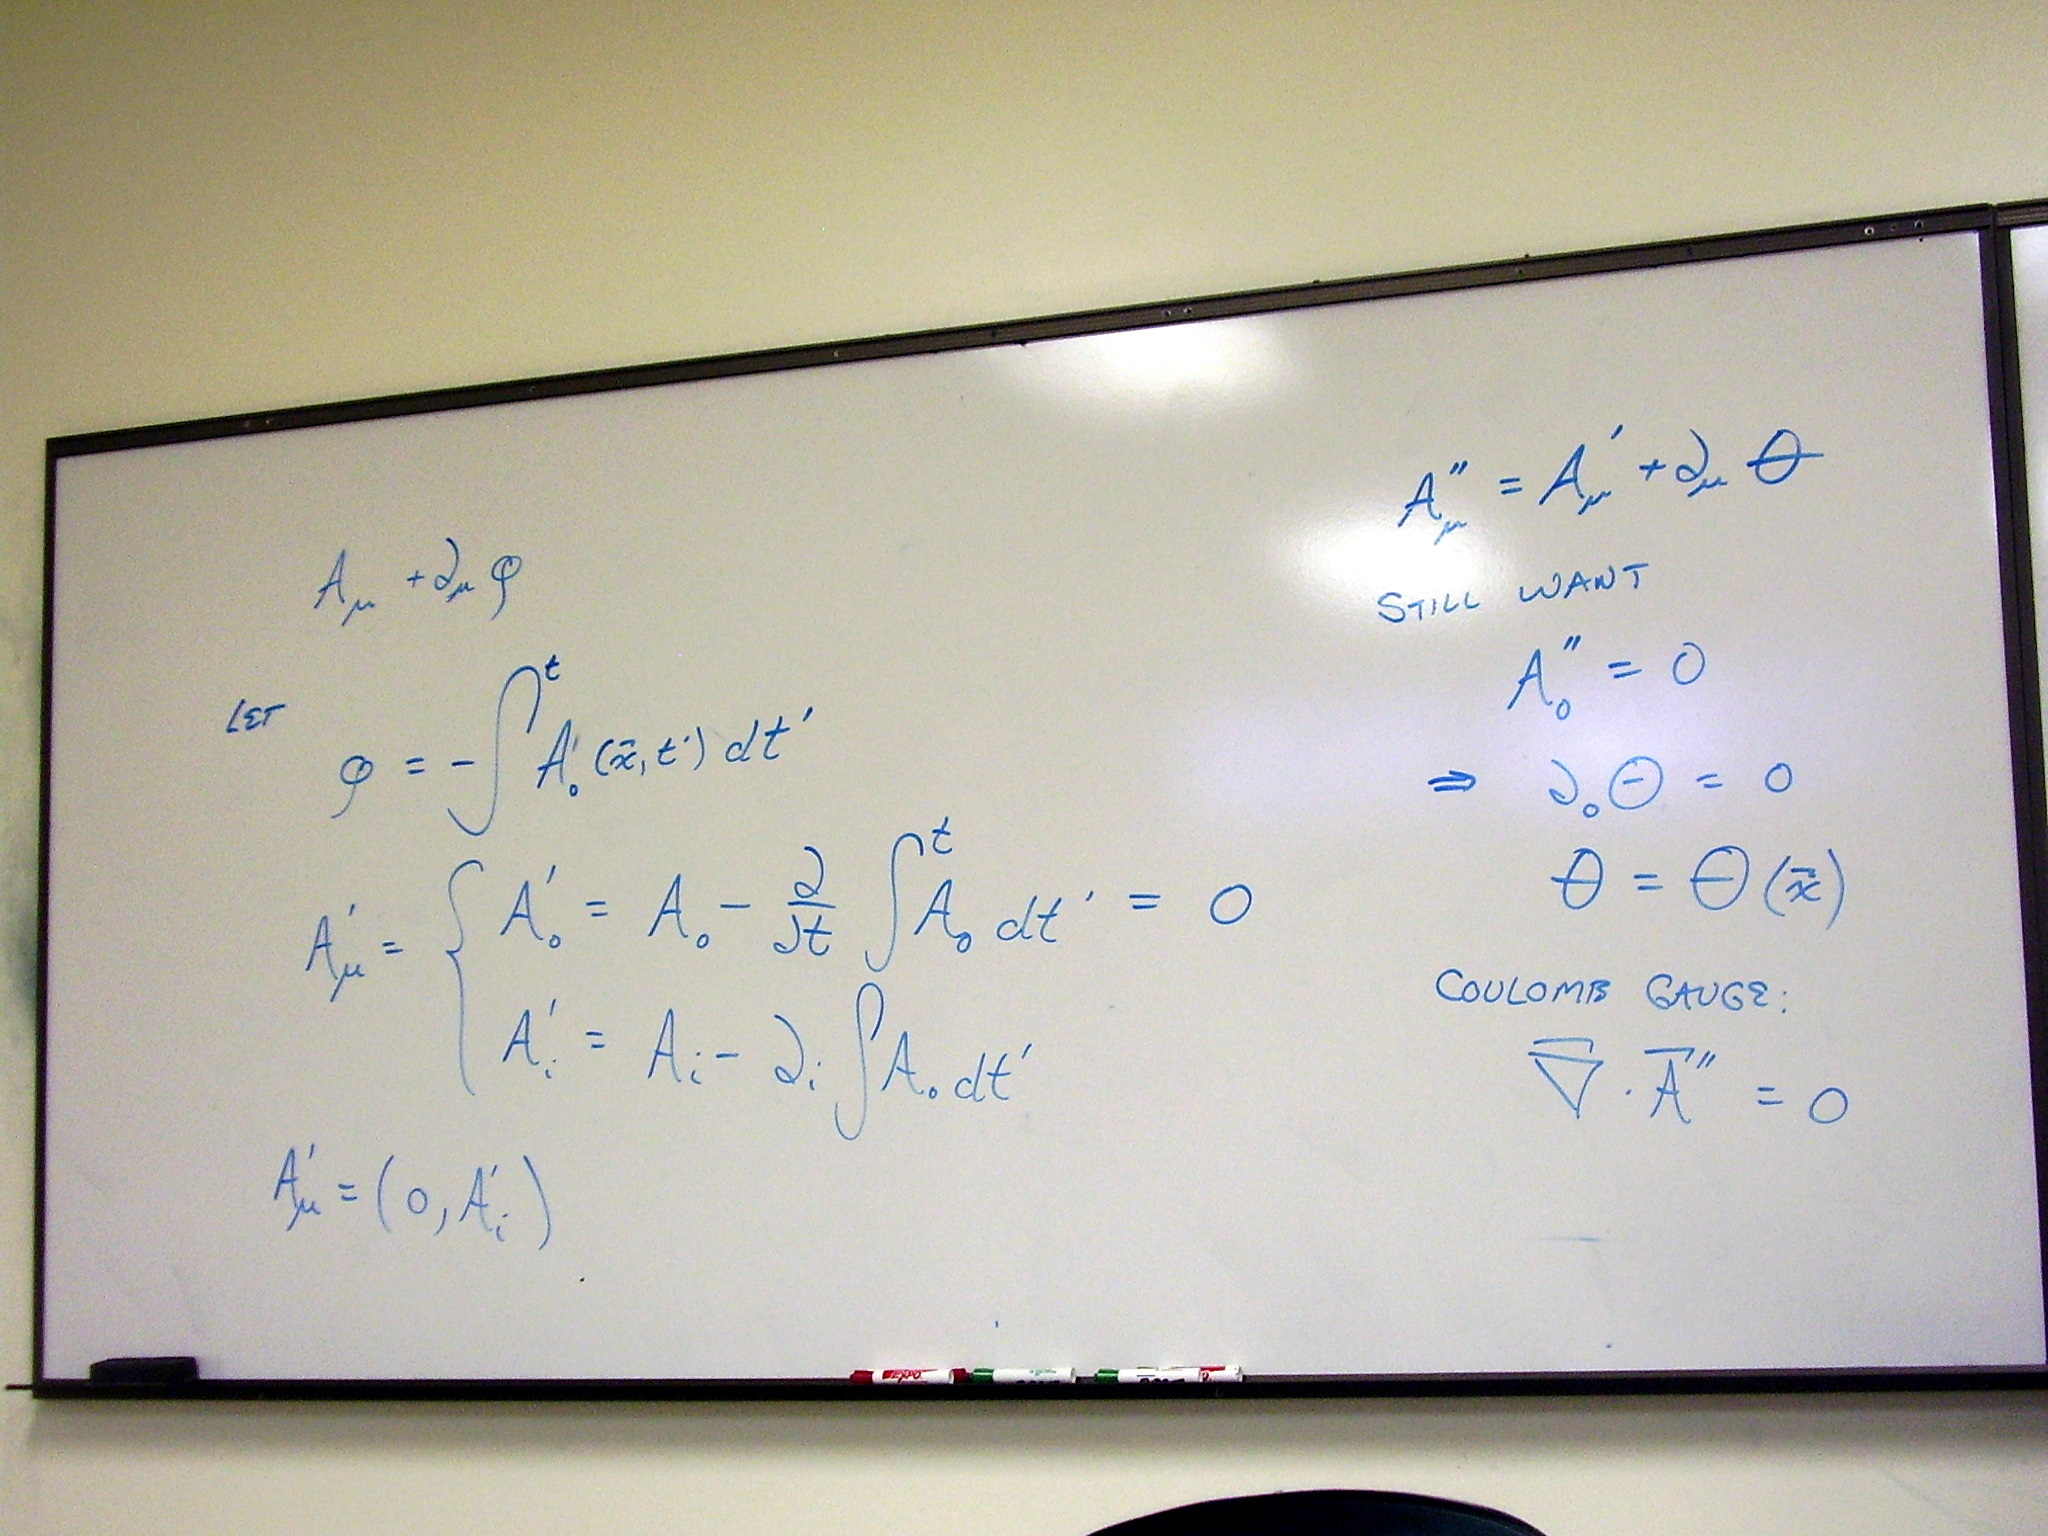 A_μ + ∂_μ φ
LET
φ = - ∫^t A'_0 (x̄, t') dt'
A'_μ = { A'_0 = A_0 - ∂/∂t ∫^t A_0 dt' = 0
A'_i = A_i - ∂_i ∫ A_0 dt'
A'_μ = (0, A'_i)
A''_μ = A'_μ + ∂_μ Θ
STILL WANT
A''_0 = 0
⇒ ∂_0 Θ = 0
Θ = Θ(x̄)
COULOMB GAUGE:
∇̄ · Ā'' = 0
EXPO